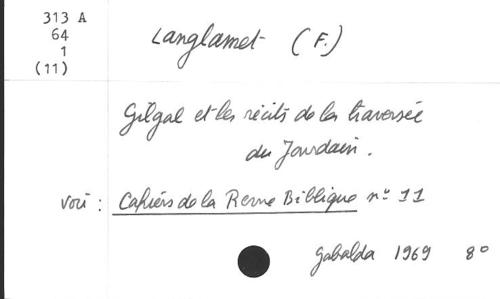 313 A
64
1
(11)
Langlamet (F.)
Gilgal et les récits de la traversée
du Jourdain.
voir : Cahiers de la Revue Biblique n° 11
Gabalda 1969 8°